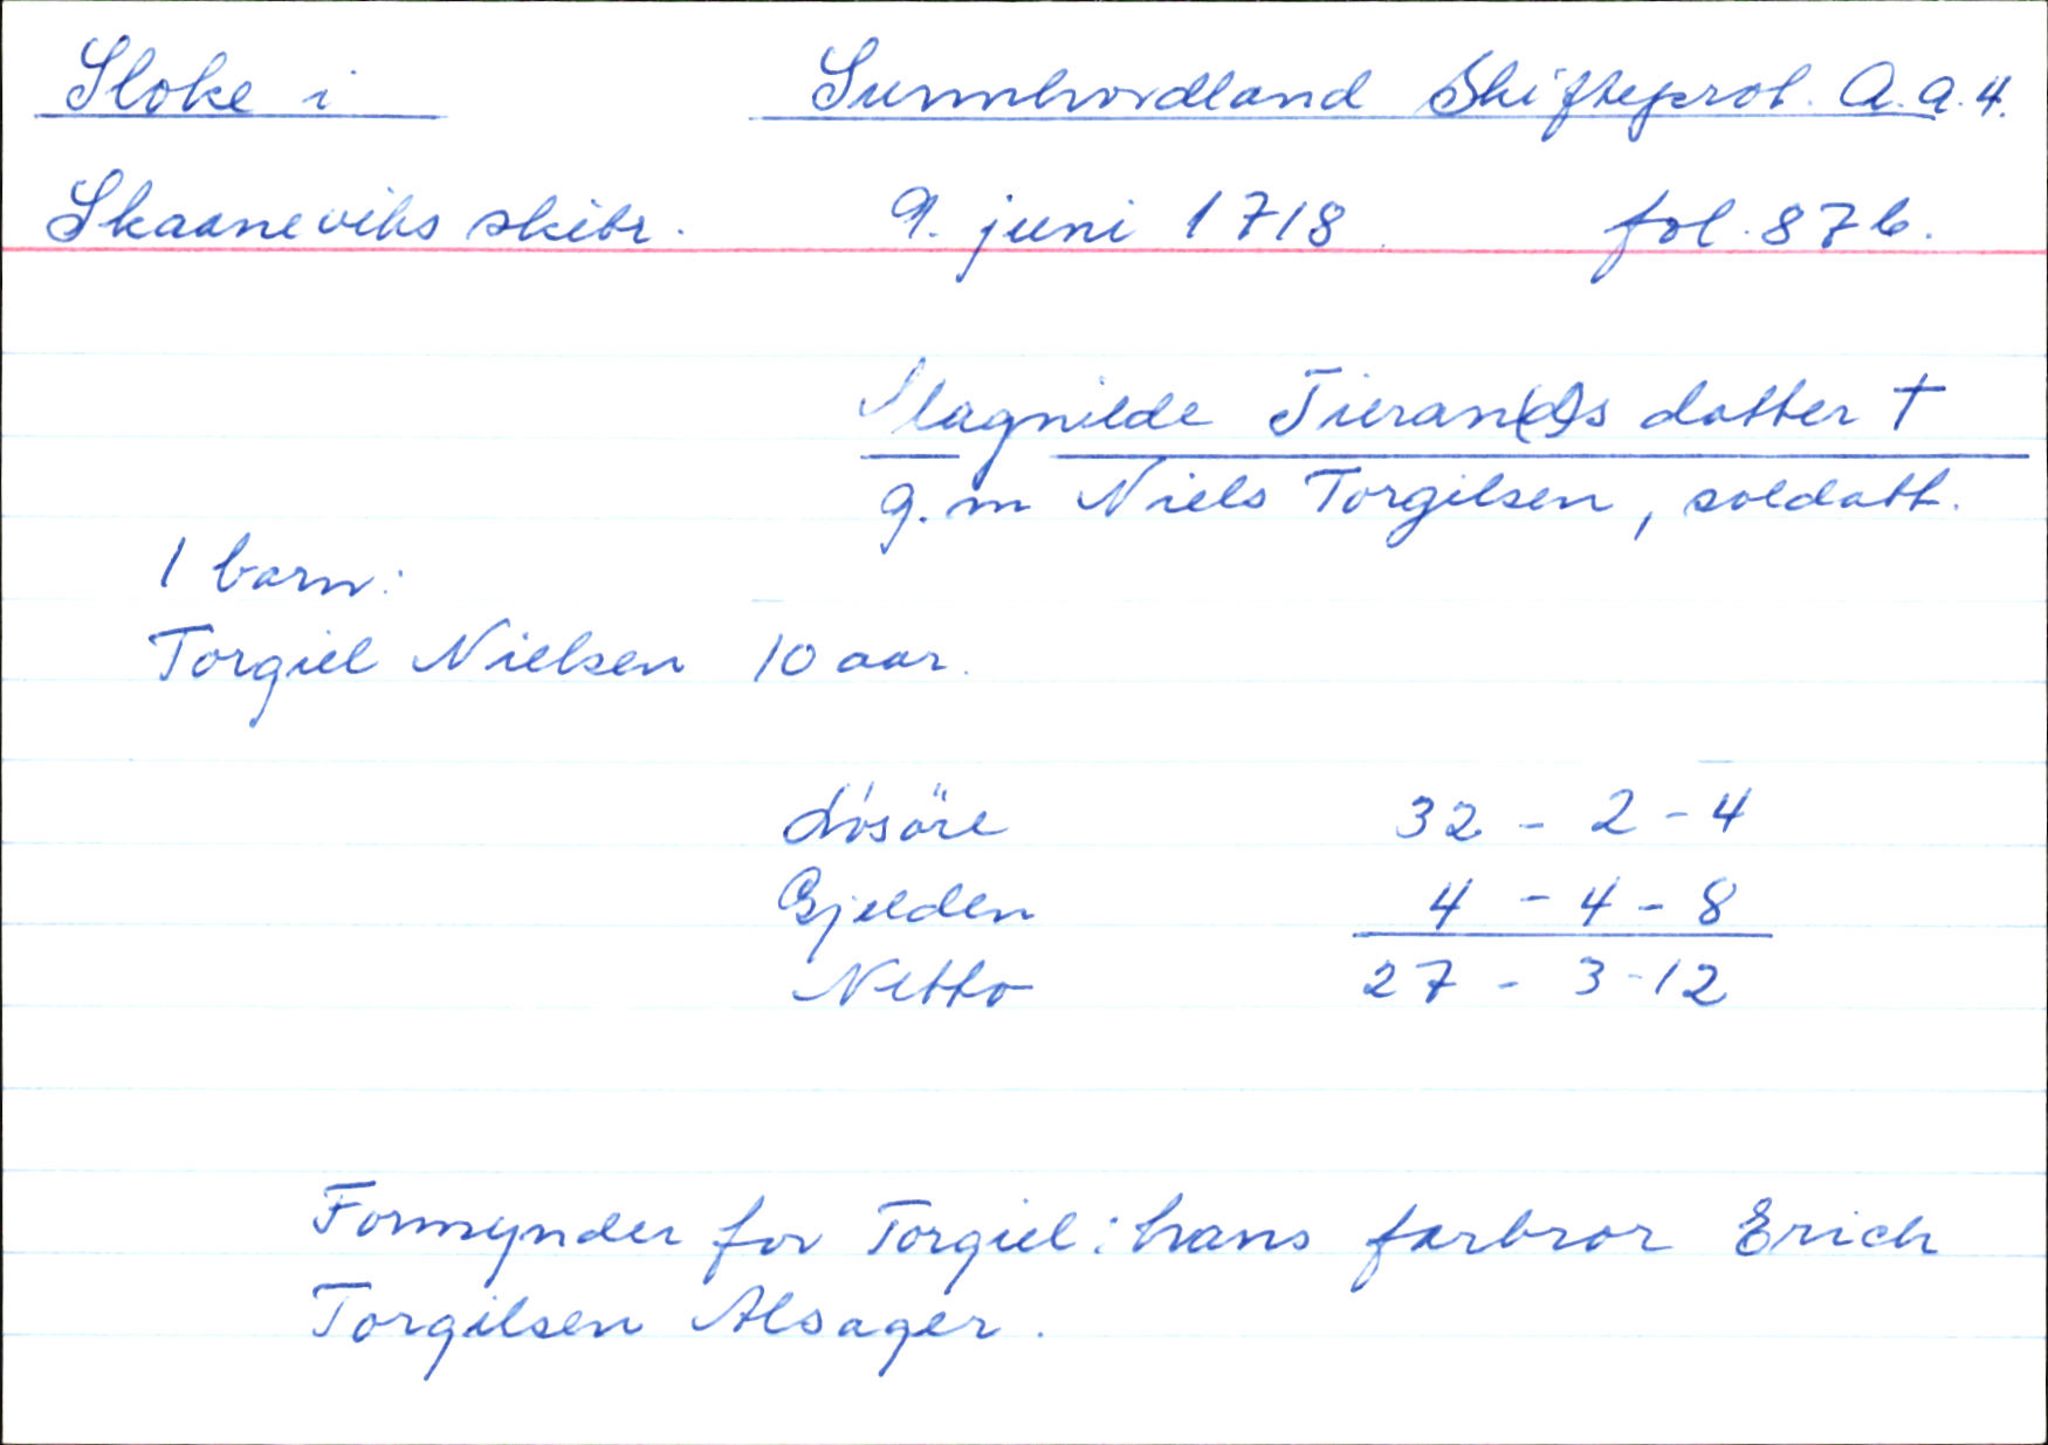 Sloke i Sunnhordland Skifteprot. A.a.4.
Skaaneviks skibr. 9. juni 1718 fol. 87b.
Magnilde Tieran(d)s datter †
g. m Niels Torgilsen, soldatt.
1 barn:
Torgiel Nielsen 10 aar.
Lösöre 32 - 2 - 4
Gjelden 4 - 4 - 8
Netto 27 - 3 - 12
Formynder for Torgiel: hans farbror Erich
Torgilsen Alsager.